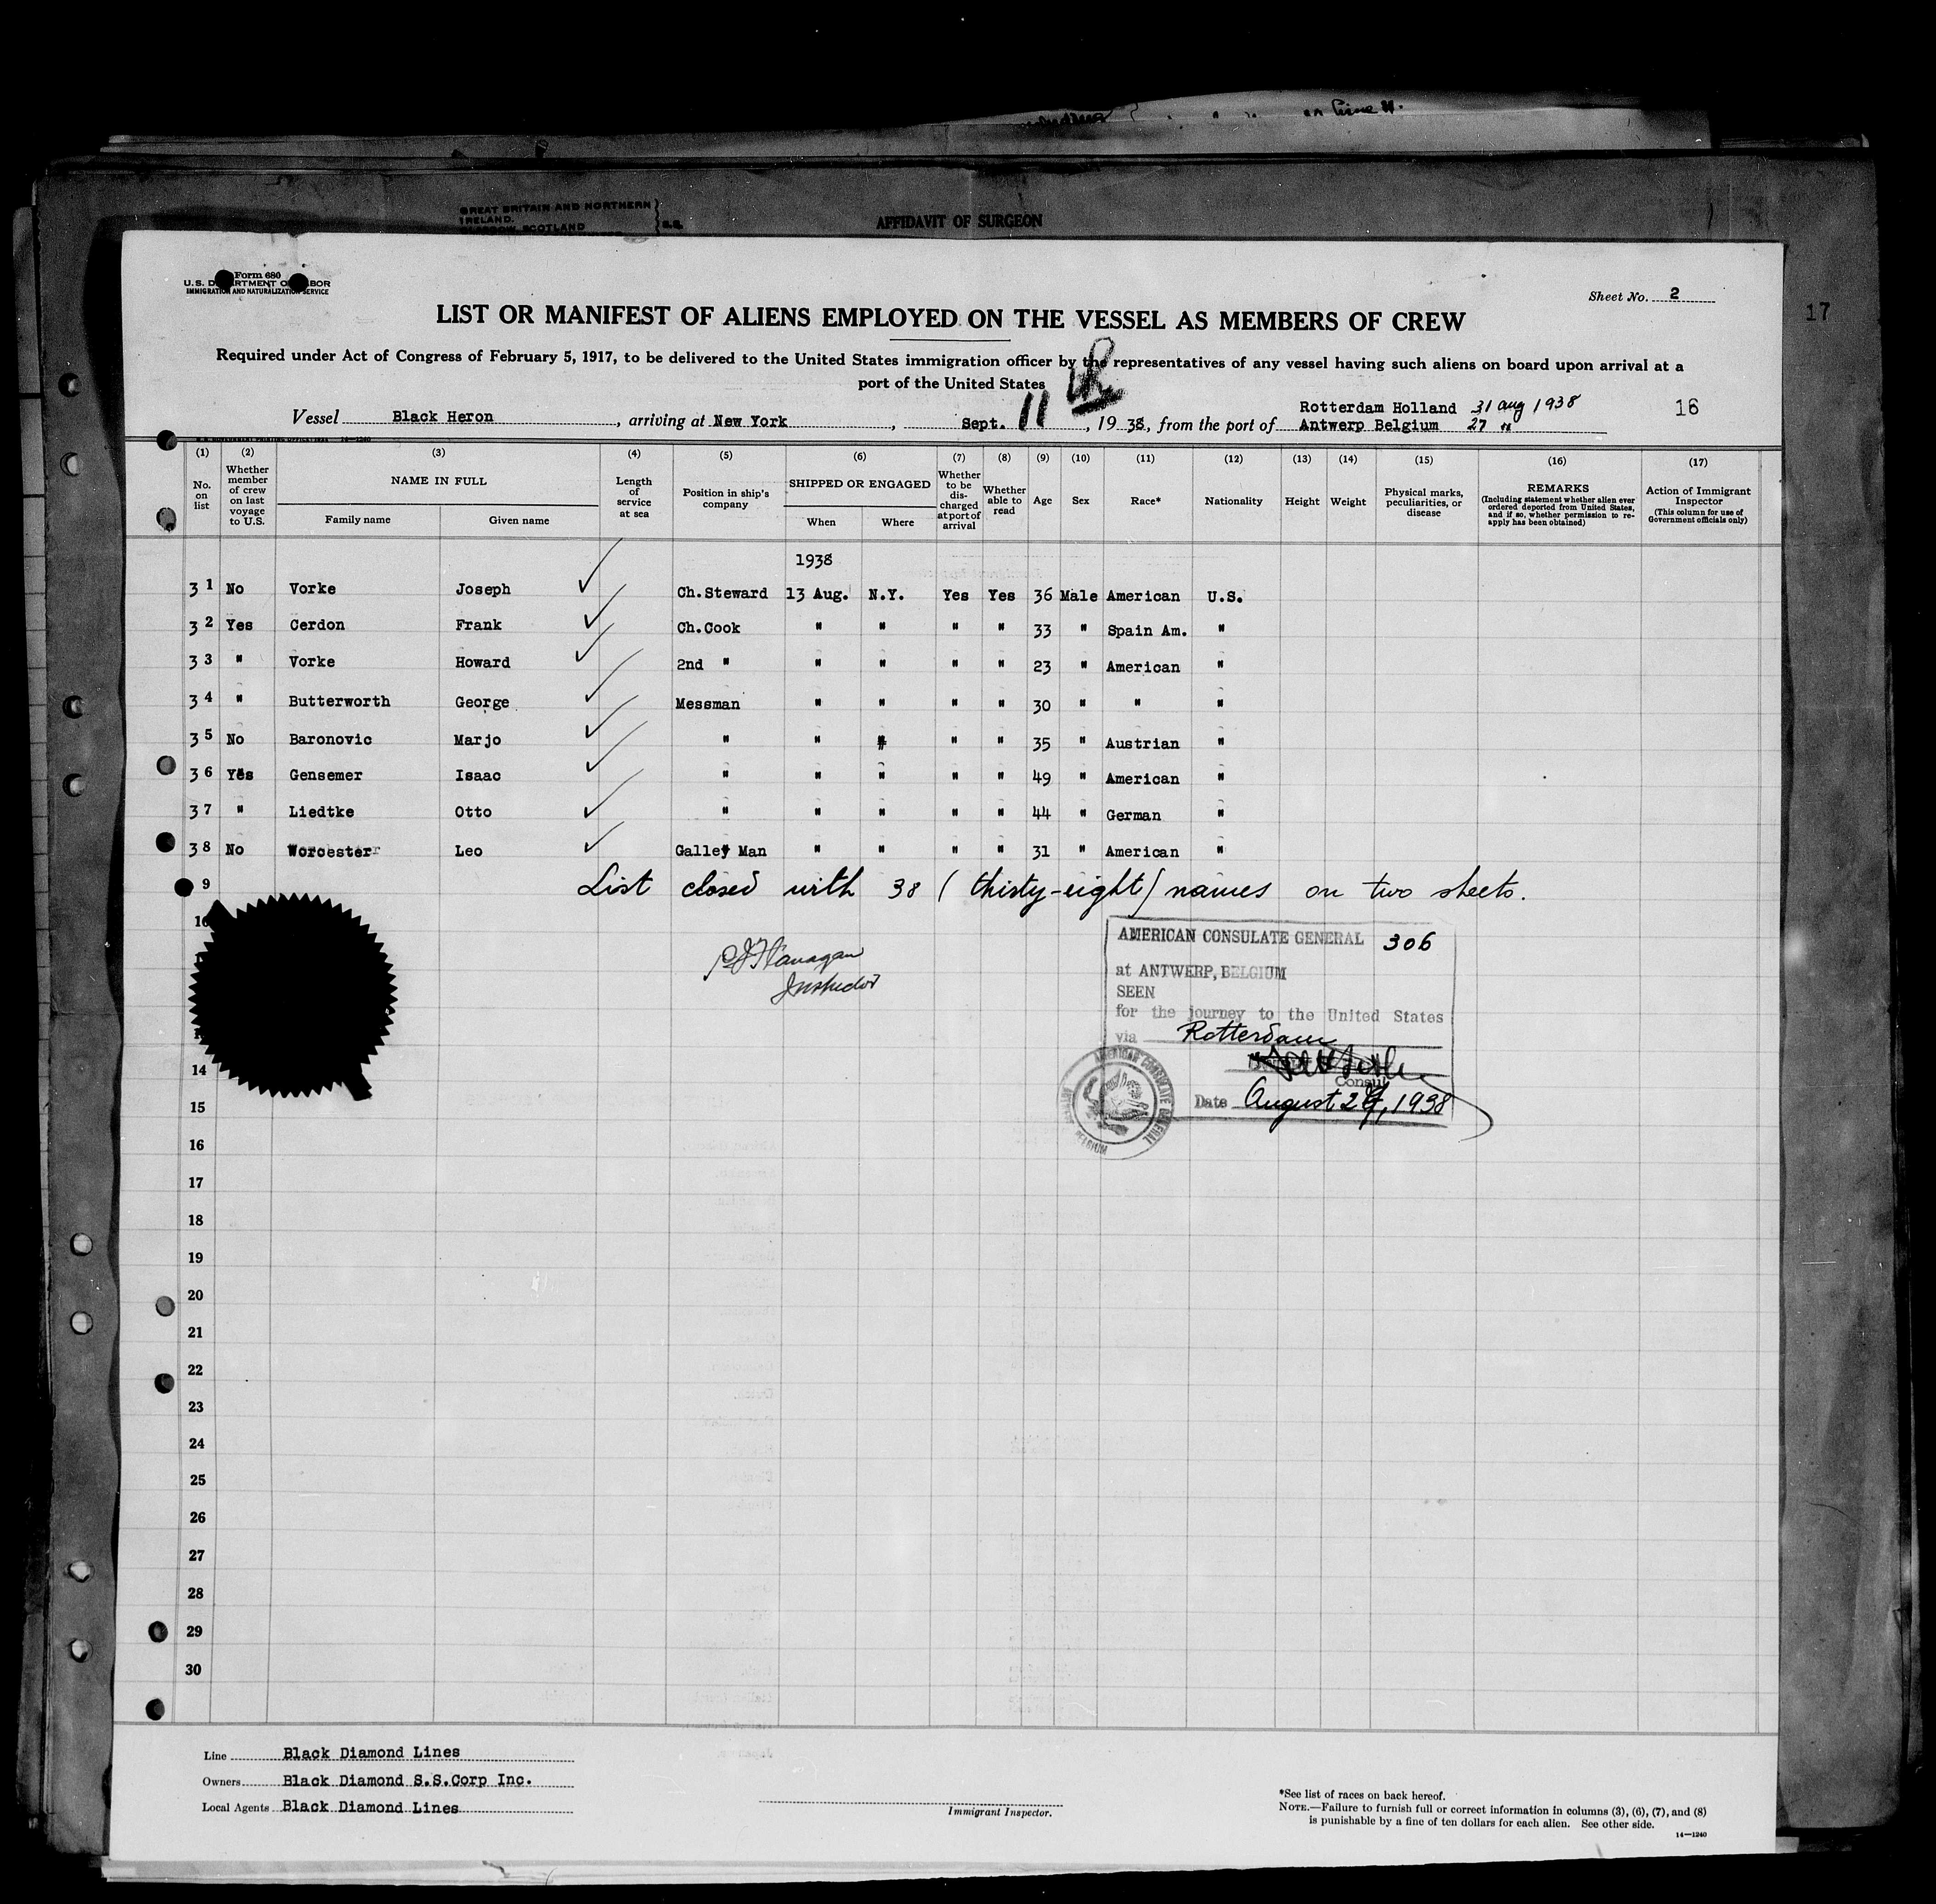 on line 11.
GREAT BRITAIN AND NORTHERN
IRELAND.
GLASGOW, SCOTLAND
S.S.
AFFIDAVIT OF SURGEON
Form 680
U.S. DEPARTMENT OF LABOR
IMMIGRATION AND NATURALIZATION SERVICE
Sheet No. 2
17
LIST OR MANIFEST OF ALIENS EMPLOYED ON THE VESSEL AS MEMBERS OF CREW
Required under Act of Congress of February 5, 1917, to be delivered to the United States immigration officer by the representatives of any vessel having such aliens on board upon arrival at a
port of the United States
Vessel Black Heron, arriving at New York, Sept. 11, 1938, from the port of Rotterdam Holland 31 Aug 1938
Antwerp Belgium 27 "
16
U.S. GOVERNMENT PRINTING OFFICE 14—1240
(1) (2) (3) (4) (5) (6) (7) (8) (9) (10) (11) (12) (13) (14) (15) (16) (17)
No. on list
Whether member of crew on last voyage to U.S.
NAME IN FULL
Family name Given name
Length of service at sea
Position in ship's company
SHIPPED OR ENGAGED
When Where
Whether to be discharged at port of arrival
Whether able to read
Age
Sex
Race*
Nationality
Height
Weight
Physical marks, peculiarities, or disease
REMARKS
(Including statement whether alien ever ordered deported from United States, and if so, whether permission to reapply has been obtained)
Action of Immigrant Inspector
(This column for use of Government officials only)
1938
31 No Vorke Joseph Ch.Steward 13 Aug. N.Y. Yes Yes 36 Male American U.S.
32 Yes Cerdon Frank Ch.Cook " " " " 33 " Spain Am. "
33 " Vorke Howard 2nd " " " " " 23 " American "
34 " Butterworth George Messman " " " " 30 " " "
35 No Baronovic Marjo " " " " " 35 " Austrian "
36 Yes Gensemer Isaac " " " " " 49 " American "
37 " Liedtke Otto " " " " " 44 " German "
38 No Worcester Leo Galley Man " " " " 31 " American "
9
List closed with 38 (thirty-eight) names on two sheets.
10
P J Flanagan
Inspector
AMERICAN CONSULATE GENERAL 306
at ANTWERP, BELGIUM
SEEN
for the journey to the United States
via Rotterdam
Consul
Date August 27, 1938
AMERICAN CONSULATE GENERAL
ANTWERP BELGIUM
14
15
16
17
18
19
20
21
22
23
24
25
26
27
28
29
30
Line Black Diamond Lines
Owners Black Diamond S.S.Corp Inc.
Local Agents Black Diamond Lines
Immigrant Inspector.
*See list of races on back hereof.
NOTE.—Failure to furnish full or correct information in columns (3), (6), (7), and (8)
is punishable by a fine of ten dollars for each alien. See other side.
14—1240